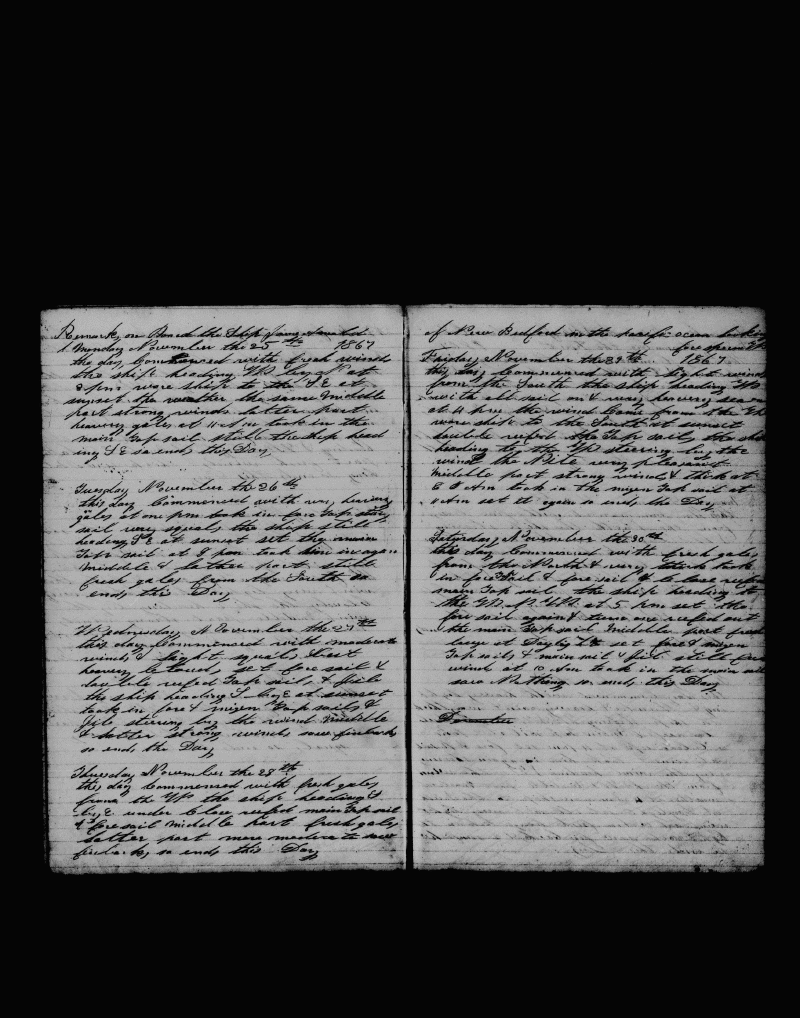 Remarks on Board the Ship
Monday November the 25th 1867
the day Commenced with fresh winds
the ship heading W by N at
pm wore ship to the S E at
sunset the weather the same middle
part strong winds latter part
heavy gales at 11 Am took in the
main Top sail still the ship head
ing S E so ends this Day
Tuesday November the 26th
this day Commenced with very heavy
gales at one pm took in fore Top
sail very squaly the ship still
heading S E at sunset set the main
Top sail at 8 pm took him in again
middle & latter part still
fresh gales from the South so
ends this Day
Wednesday November the 27th
this day Commenced with moderate
winds & light squals
heavy set fore sail &
double reefed Top sails & Jibe
the ship heading S by E at sunset
took in fore & mizen Top sails &
Jib stering by the wind middle
& latter strong winds saw finbacks
so ends the Day
Thursday November the 28th
this day Commenced with fresh gales
from the W the ship heading S
by E under Close reefed main Top sail
& fore sail middle part fresh gales
latter part more saw
finbacks so ends this Day
of New Bedford in the pacific ocean looking
for sperm
Friday November the 29th 1867
this day Commenced with light winds
from the South the ship heading W
with all sail on & very heavy sea
at 4 pm the wind Came from the
wore ship to the South at sunset
double reefed the Top sails the ship
heading to the W steering by the
wind the Nite very pleasant
middle part strong winds & thick at
8 Am took in the mizen Top sail at
11 Am set it again so ends the Day
Saturday November the 30th
this day Commenced with fresh gales
from the North & very thick took
in fore sail & Close reefed
main Top sail the ship heading to
the at 5 pm set the
fore sail again & turn one reefed out
the main Top sail middle part fresh
at Daylight set fore & mizen
Top sails & main sail & Jib still
wind at 10 Am took in the main sail
saw Nothing so ends this Day